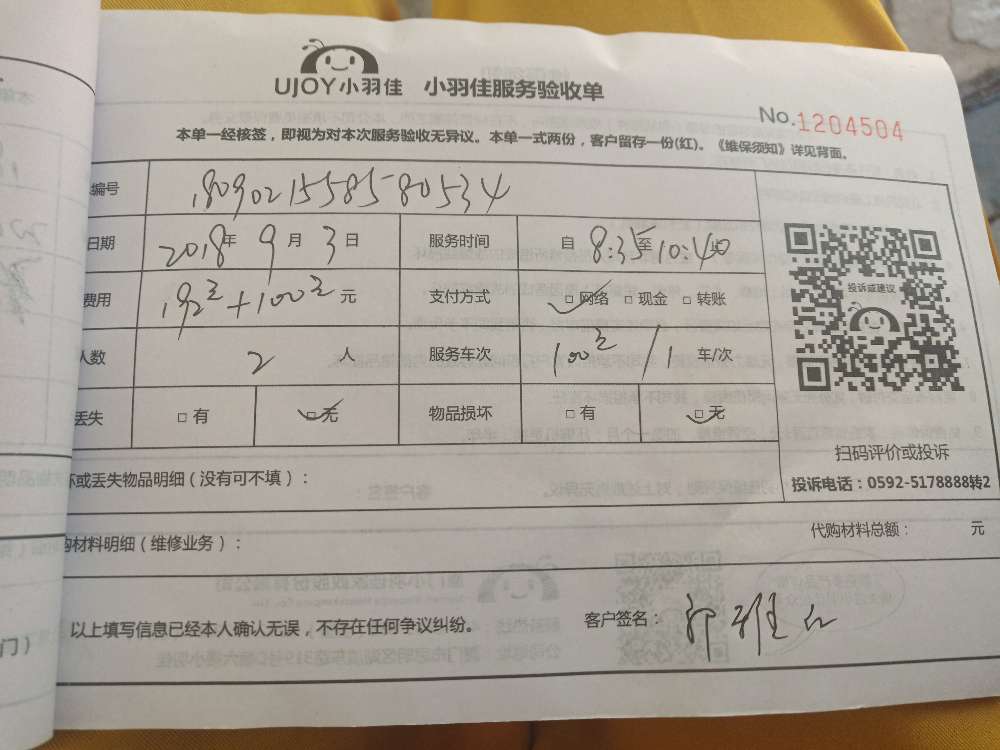 UJOY小羽佳 小羽佳服务验收单
No.1204504
本单一经核签，即视为对本次服务验收无异议。本单一式两份，客户留存一份(红)。《维保须知》详见背面。
编号 1809021558580534
日期 2018年9月3日 服务时间 自8:35至10:40止
费用 192元+100元 元 支付方式 □网络 □现金 □转账
人数 2 人 服务车次 100元/1 车/次
丢失 □有 □无 物品损坏 □有 □无
投诉或建议
扫码评价或投诉
投诉电话：0592-5178888转2
坏或丢失物品明细（没有可不填）：
购材料明细（维修业务）： 代购材料总额： 元
以上填写信息已经本人确认无误，不存在任何争议纠纷。 客户签名：
门）